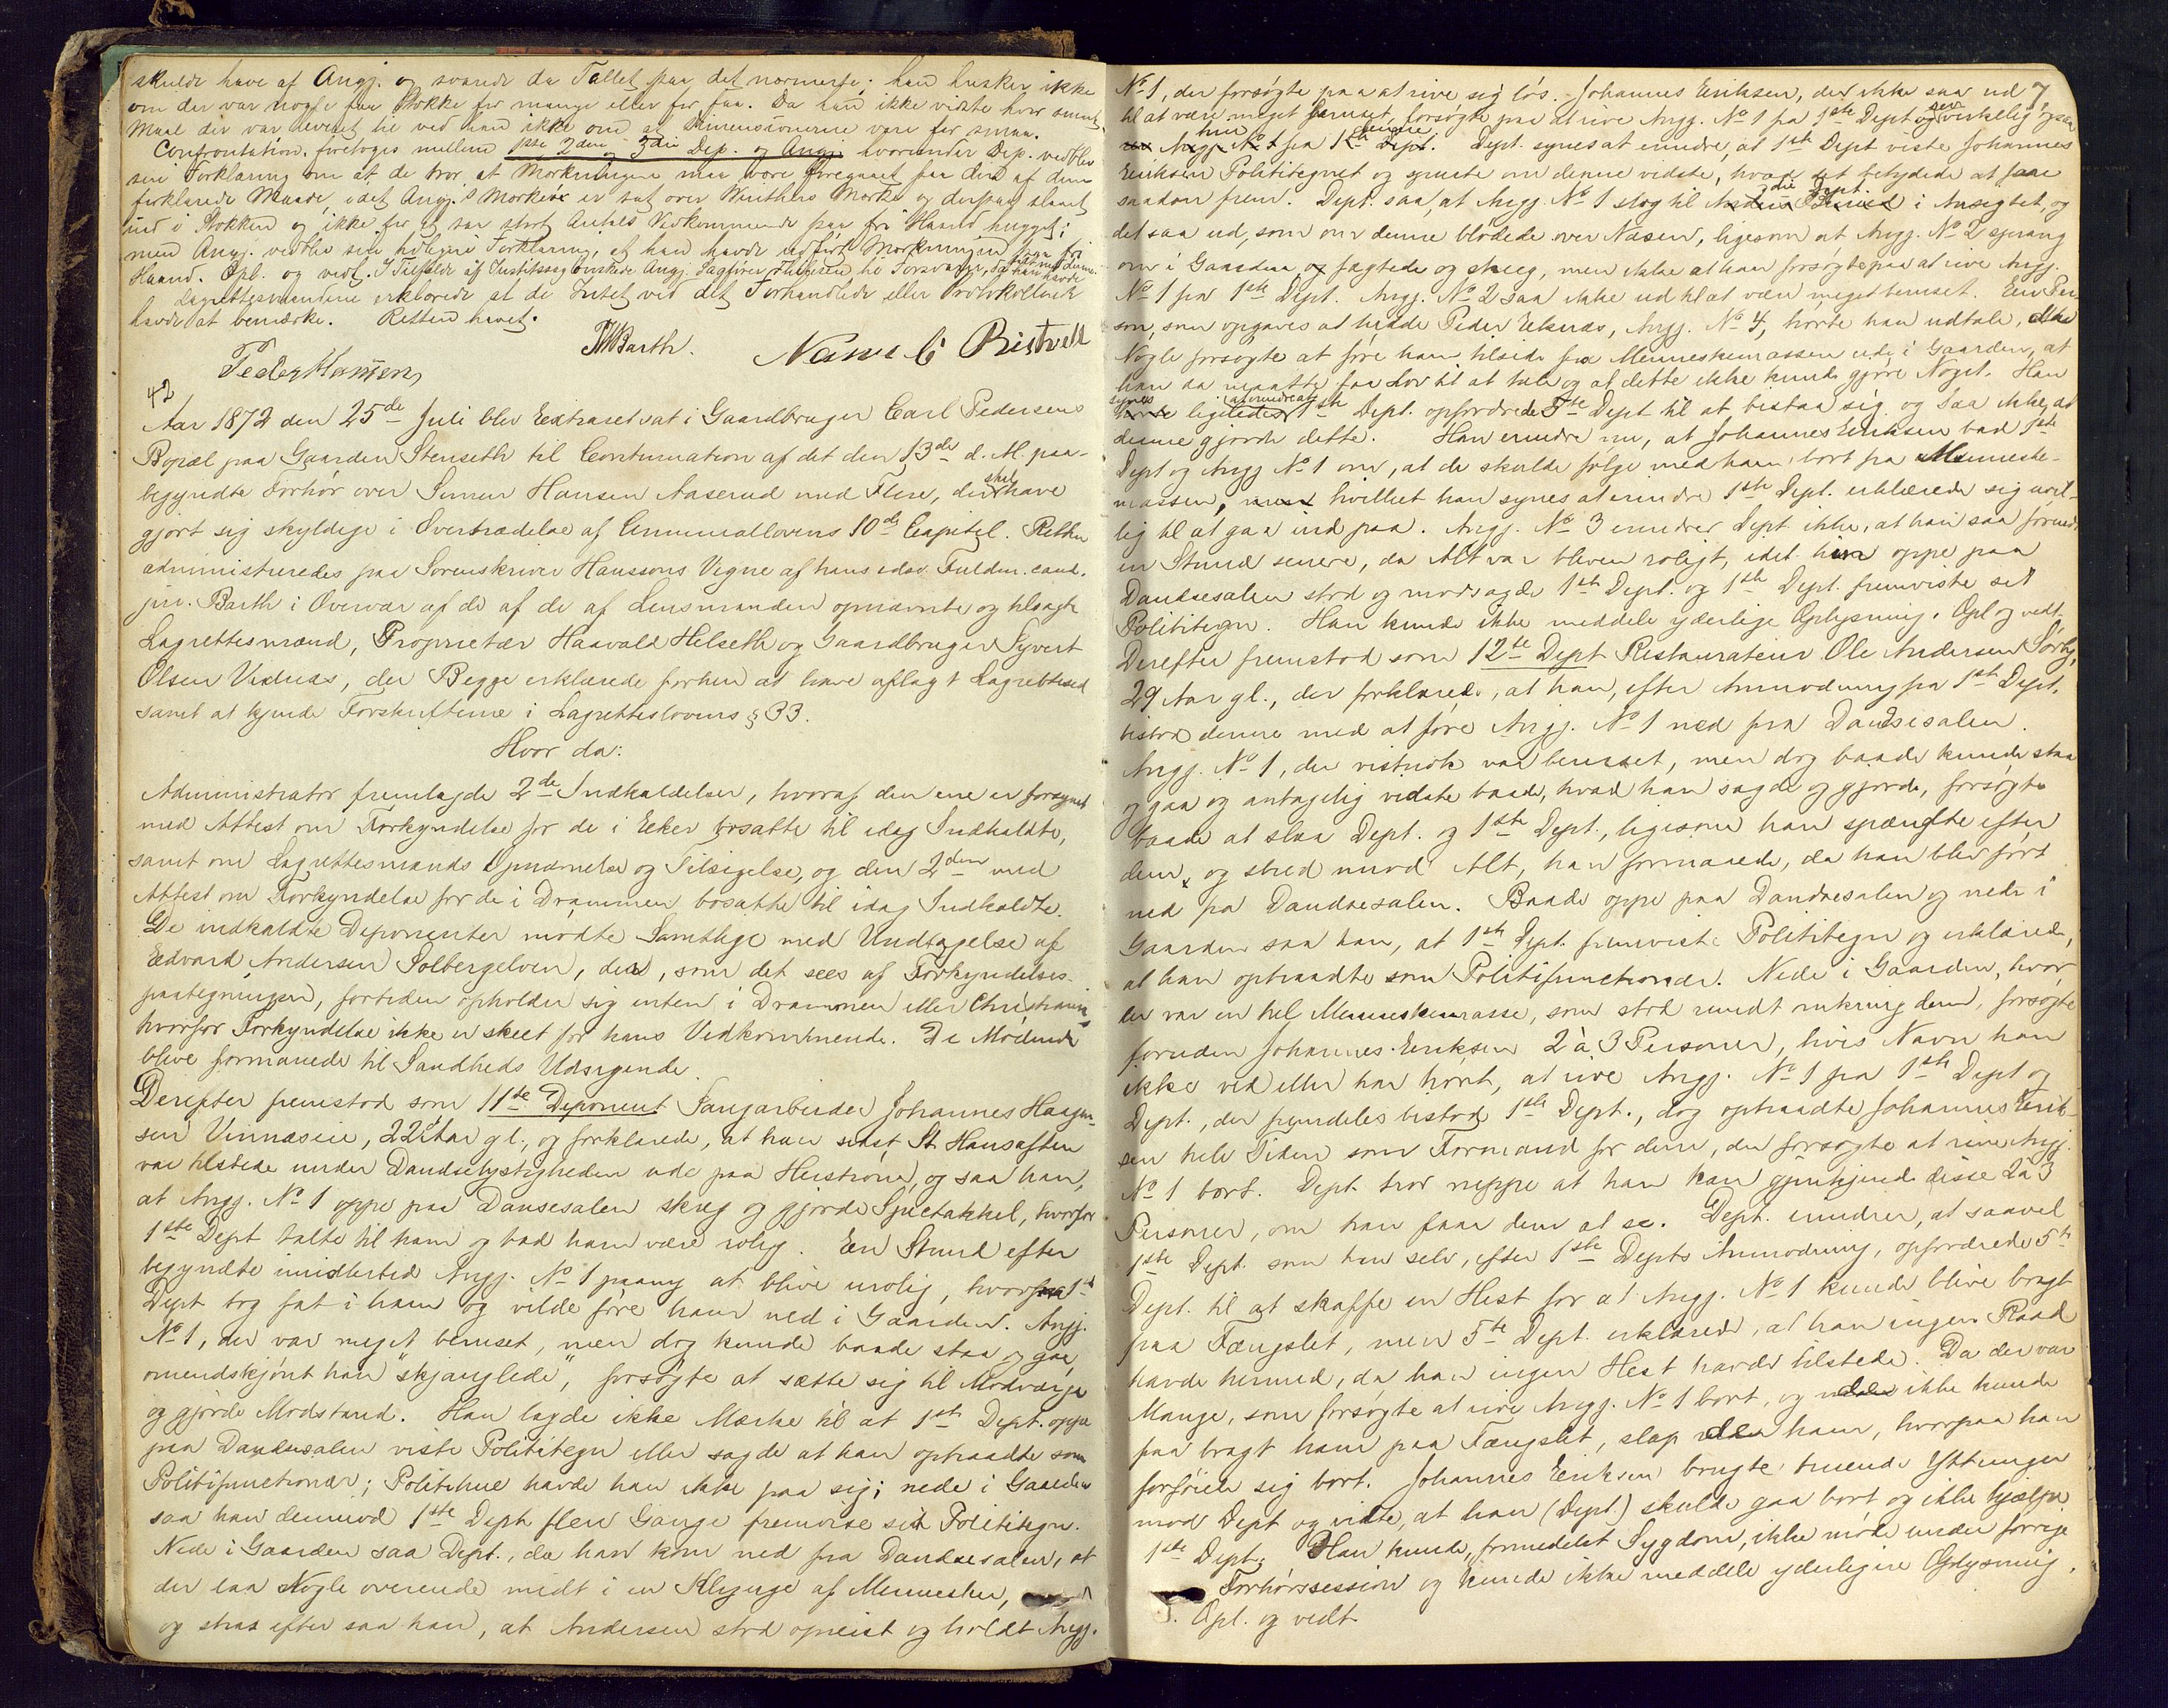 skulde have af Angj. og svarede da Tallet paa det nærmeste; han husker ikke
om der var nogle faa Stokke for mange eller for faa. Da han ikke vidste hvor smaat
Maal der var leveret til ved han ikke om at Dimensionerne vare for smaa.
Confrontation foretoges mellem 1ste 2den og 3die Dep. og Angj. hvorunder Dep. vedblev
sin Forklaring om at de tror at Mærkningen maa være foregaaet paa den af dem
forklarede Maade, idet Angj.s Mærke er sat over Winthers Mærke og derpaa slaaet
ind i Stokken og ikke for et saa stort Antals Vedkommende paa fri Haand hugget;
men Angj. vedblev sin tidligere Forklaring, at han havde udført Mærkningen paa fri
Haand. Opl. og vedt. I Tilfælde af Justitssag ønskede Angj. Sagfører til Forsvarer, da han havde
Lagrettesmændene erklærede at de Intet ved det Forhandlede eller Protokollerede
havde at bemærke. Retten hævet.
Barth. Nans C Bistrell
Peder Hansen
42
Aar 1872 den 25de Juli blev Extraret sat i Gaardbruger Carl Pedersens
Bopæl paa Gaarden Stenseth til Continuation af det den 13de d. M. paa-
begyndte Forhør over Simen Hansen Aaserud med Flere, der skal have
gjort sig skyldige i Overtrædelse af Criminallovens 10de Capitel. Retten
administreredes paa Sorenskriver Hanssons Vegne af hans edsv. Fuldm. cand.
jur. Barth i Overvær af de af de af Lensmanden opnævnte og tilsagte
Lagrettesmænd, Proprietær Haavald Helseth og Gaardbruger Syvert
Olsen Vednæs, der Begge erklærede forhen at have aflagt Lagrettesed
samt at kjende Forskrifterne i Lagretteslovens § 33.
Hvor da:
Administrator fremlagde 2de Indkaldelser, hvoraf den ene er forsynet
med Attest om Forkyndelse for de i Eeker bosatte til idag Indkaldte,
samt om Lagrettesmænds Opnævnelse og Tilsigelse, og den 2den med
Attest om Forkyndelse for de i Drammen bosatte til idag Indkaldte.
De indkaldte Deponenter mødte Samtlige med Undtagelse af
Edvard Andersen Solbergelven, der, som det sees af Forkyndelses-
paategningen, fortiden opholder sig enten i Drammen eller Christiania,
hvorfor Forkyndelse ikke er skeet for hans Vedkommende. De Mødende
blive formanede til Sandheds Udsigende.
Derefter fremstod som 11te Deponent Saugarbeider Johannes Haagen-
sen Vinnæseie, 22 Aar gl., og forklarede, at han sidst St. Hansaften
var tilstede under Dandselystigheden ude paa Hustrone, og saa han,
at Angj. No 1 oppe paa Dansesalen skreg og gjorde Spectakkel, hvorfor
1ste Dept talte til ham og bad ham være rolig. En Stund efter
begyndte imidlertid Angj. No 1 paany at blive urolig, hvorfor 1ste
Dept tog fat i ham og vilde føre ham ned i Gaarden. Angj.
No 1, der var meget beruset, men dog kunde baade staa og gaa,
omendskjønt han "skjanglede", forsøgte at sætte sig til Modværge
og gjorde Modstand. Han lagde ikke Mærke til at 1ste Dept. oppe
paa Dandsesalen viste Polititegn eller sagde at han optraadte som
Politifunctionær; Politihue havde han ikke paa sig; nede i Gaarden
saa han derimod 1ste Dept flere Gange fremvise sit Polititegn.
Nede i Gaarden saa Dept., da han kom ned fra Dandsesalen, at
der laa Nogle overende midt i en Klynge af Mennesker,
og strax efter saa han, at Andersen stod opreist og holdt Angj.
7.
No 1, der forsøgte paa at rive sig løs. Johannes Eriksen, der ikke saa ud
til at være meget beruset, forsøgte paa at rive Angj. No 1 fra 1ste Dept og rev virkelig ogsaa
ham fra denne. Dept. synes at erindre, at 1ste Dept viste Johannes
Eriksen Polititegnet og spurgte om denne vidste, hvad det betydede at saae
saadan frem. Dept. saa, at Angj. No 1 slog til 3die Dept. i Ansigtet, og
det saa ud, som om denne blødede over Næsen, ligesom at Angj. No 2 sprang
om i Gaarden og fægtede og skreg, men ikke at han forsøgte paa at rive Angj.
No 1 fra 1ste Dept. Angj. No 2 saa ikke ud til at være meget beruset. En Per-
son, som opgaves at hedde Peder Eknæs, Angj. No 4, hørte han udtale, da
Nogle forsøgte at føre ham tilside fra Menneskemassen ude i Gaarden, at
han da maatte faa Lov til at tale og at dette ikke kunde gjøre Noget. Han
synes at erindre at 1ste Dept. opfordrede 5te Dept til at bistaa sig og saa ikke, at
denne gjorde dette. Han erindrer nu, at Johannes Eriksen bad 1ste
Dept og Angj No 1 om, at de skulde følge med ham bort fra Menneske-
massen, hvilket han synes at erindre 1ste Dept. erklærede sig uvil-
lig til at gaa ind paa. Angj. No 3 erindrer Dept ikke, at han saa førend
en Stund senere, da Alt var bleven roligt, idet han oppe paa
Dandsesalen stod og modsagde 1ste Dept. og 1ste Dept. fremviste sit
Polititegn. Han kunde ikke meddele yderlige Oplysning. Opl og vedt.
Derefter fremstod som 12te Dept Restaurateur Ole Andersen Sørby,
29 Aar gl., der forklarede, at han, efter Anmodning fra 1ste Dept.
bistod denne med at føre Angj. No 1 ned fra Dandsesalen.
Angj. No 1, der vistnok var beruset, men dog baade kunde staa
og gaa og antagelig vidste baade, hvad han sagde og gjorde, forsøgte
baade at slaa Dept. og 1ste Dept., ligesom han spændte efter
dem, og stred imod Alt, han formaaede, da han blev ført
ned fra Dandsesalen. Baade oppe paa Dandsesalen og nede i
Gaarden saa han, at 1ste Dept. fremviste Polititegn og erklærede,
at han optraadte som Politifunctionær. Nede i Gaarden, hvor
der var en hel Menneskemasse, som stod rundt omkring dem, forsøgte
foruden Johannes Eriksen 2 à 3 Personer, hvis Navn han
ikke ved eller har hørt, at rive Angj. No 1 fra 1ste Dept og
Dept., der fremdeles bistod 1ste Dept., dog optraadte Johannes Erik-
sen hele Tiden som Formand for dem, der forsøgte at rive Angj.
No 1 bort. Dept. tror neppe at han kan gjenkjende disse 2 à 3
Personer, om han faar dem at se. Dept. erindrer, at saavel
1ste Dept. som han selv, efter 1ste Depts Anmodning, opfordrede 5te
Dept. til at skaffe en Hest for at Angj. No 1 kunde blive bragt
paa Fængslet, men 5te Dept. erklærede, at han ingen Raad
havde hermed, da han ingen Hest havde tilstede. Da der var
Mange, som forsøgte at rive Angj. No 1 bort, og de ikke kunde
faa bragt ham paa Fængslet, slap de ham, hvorpaa han
forføiede sig bort. Johannes Eriksen brugte truende Yttringer
mod Dept og vilde, at han (Dept.) skulde gaa bort og ikke hjælpe
1ste Dept. Han kunde, formedelst Sygdom, ikke møde under forrige
Forhørssession og kunde ikke meddele yderligere Oplysning.
Opl. og vedt.